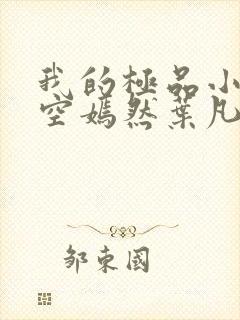 我的極品小
空嫣然葉凡
鄒東國